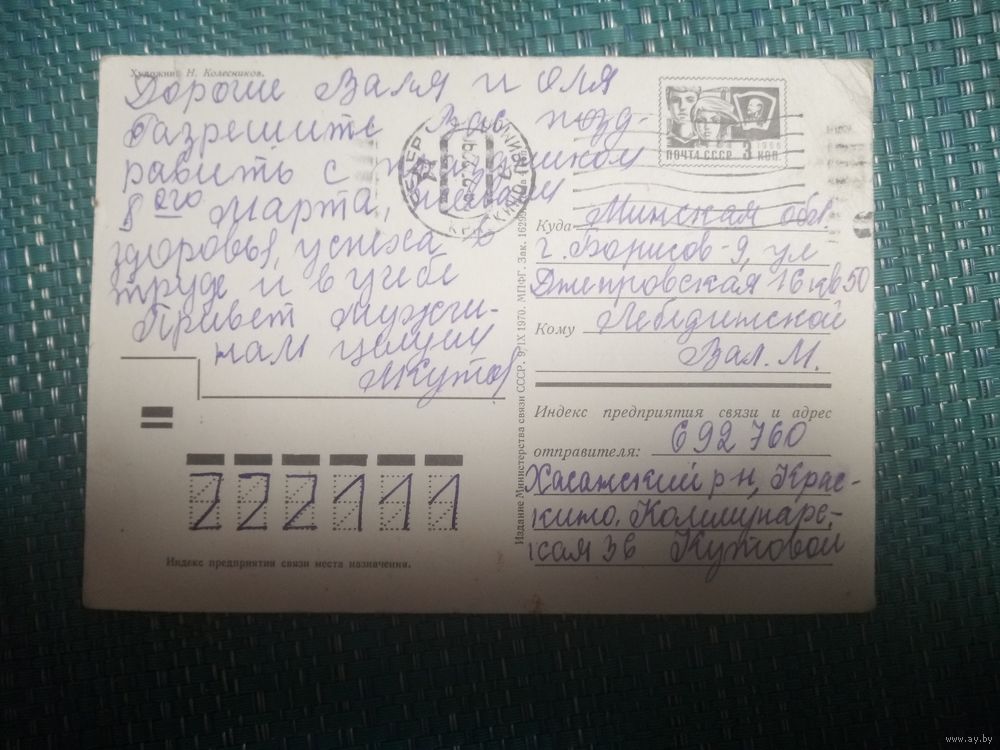 Художник Н. Колесников.
Дорогие Валя и Оля
Разрешите Вас позд-
равить с праздником
8 ого Марта, желаем
здоровья, успеха в
труде и в учебе
Привет мужчи-
нам целуем
ПОЧТА СССР 3 КОП. 1966
Куда Минская обл.
г. Борисов-9, ул
Днепровская 16 кв 50
Кому Лебединской
Вал. М.
Индекс предприятия связи и адрес
отправителя: 692760
Хасанский р-н, Крас-
кино, Коммунаре-
Кутовой
Издание Министерства связи СССР. 9/IX 1970. МПФГ. Зак.
222111
Индекс предприятия связи места назначения.
www.ay.by